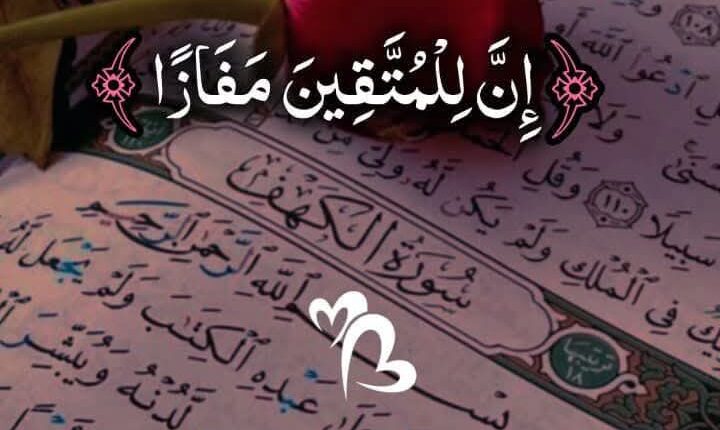 ﴿إِنَّ لِلْمُتَّقِينَ مَفَازًا﴾
١٠٨
ادْعُوا اللَّهَ
وَلَا
سَبِيلًا ١١٠ وَقُلِ
فِي الْمُلْكِ وَلَمْ يَكُن لَّهُ وَلِيٌّ مِّنَ
سُورَةُ الْكَهْفِ
ترتيبها ١٨
بِسْمِ اللَّهِ الرَّحْمَٰنِ الرَّحِيمِ
عَبْدِهِ الْكِتَٰبَ وَلَمْ يَجْعَل لَّهُ
لَّدُنْهُ وَيُبَشِّرَ